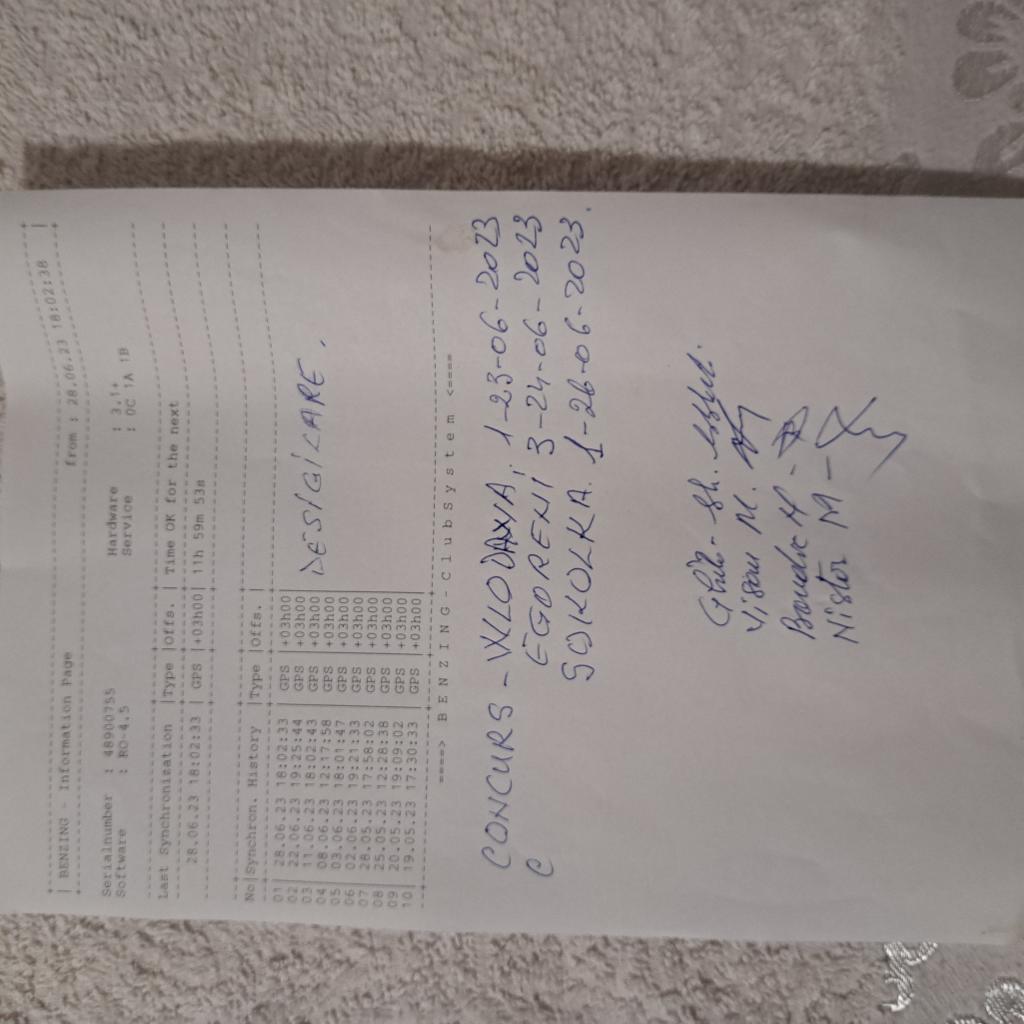 | BENZING - Information Page from : 28.06.23 18:02:38 |
Serialnumber : 48900755 Hardware : 3.1+
Software : RO-4.5 Service : 0C 1A 1B
Last Synchronization |Type |Offs. | Time OK for the next
28.06.23 18:02:33 | GPS |+03h00| 11h 59m 53s
No|Synchron. History |Type |Offs. |
01| 28.06.23 18:02:33 | GPS |+03h00|
02| 22.06.23 19:25:44 | GPS |+03h00|
03| 11.06.23 18:02:43 | GPS |+03h00|
04| 08.06.23 12:17:58 | GPS |+03h00|
05| 03.06.23 18:01:47 | GPS |+03h00|
06| 02.06.23 19:21:33 | GPS |+03h00|
07| 28.05.23 17:58:02 | GPS |+03h00|
08| 25.05.23 12:28:38 | GPS |+03h00|
09| 20.05.23 19:09:02 | GPS |+03h00|
10| 19.05.23 17:30:33 | GPS |+03h00|
DESIGILARE.
====> B E N Z I N G - C l u b S y s t e m <====
CONCURS - WLODAWA, 1-23-06-2023
C EGORENI 3-24-06-2023
SOKOLKA. 1-26-06-2023.
Visan M.
Nistor M -